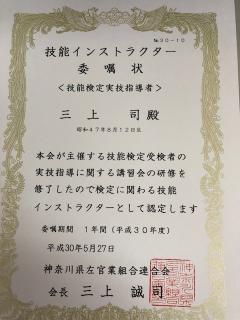 №30-10
技能インストラクター
委嘱状
＜技能検定実技指導者＞
三上 司殿
昭和47年8月12日生
本会が主催する技能検定受検者の
実技指導に関する講習会の研修を
修了したので検定に関わる技能
インストラクターとして認定します
委嘱期間 1年間（平成30年度）
平成30年5月27日
神奈川県左官業組合連合会
会長 三上誠司